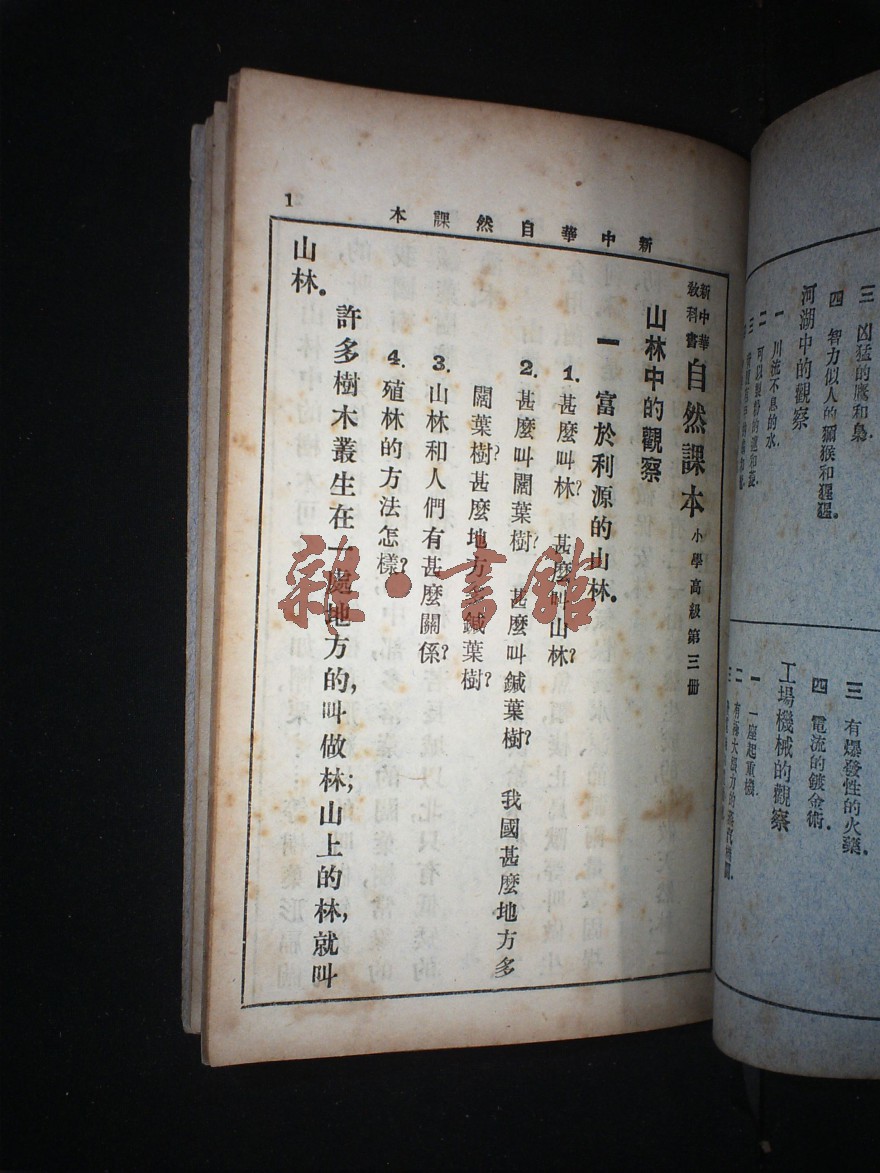 三 凶猛的鷹和梟.
四 智力似人的獼猴和猩猩.
河湖中的觀察
一 川流不息的水.
二
三 有爆發性的火藥.
四 電流的鍍金術.
工場機械的觀察
一 一座起重機.
二
新中華自然課本
1
新中華
教科書
自然課本 小學高級第三冊
山林中的觀察
一 富於利源的山林.
1. 甚麼叫林? 甚麼叫山林?
2. 甚麼叫闊葉樹? 甚麼叫鍼葉樹? 我國甚麼地方多
闊葉樹? 甚麼地方多鍼葉樹?
3. 山林和人們有甚麼關係?
4. 殖林的方法怎樣?
許多樹木叢生在一處地方的, 叫做林; 山上的林, 就叫
山林.
雜·書館